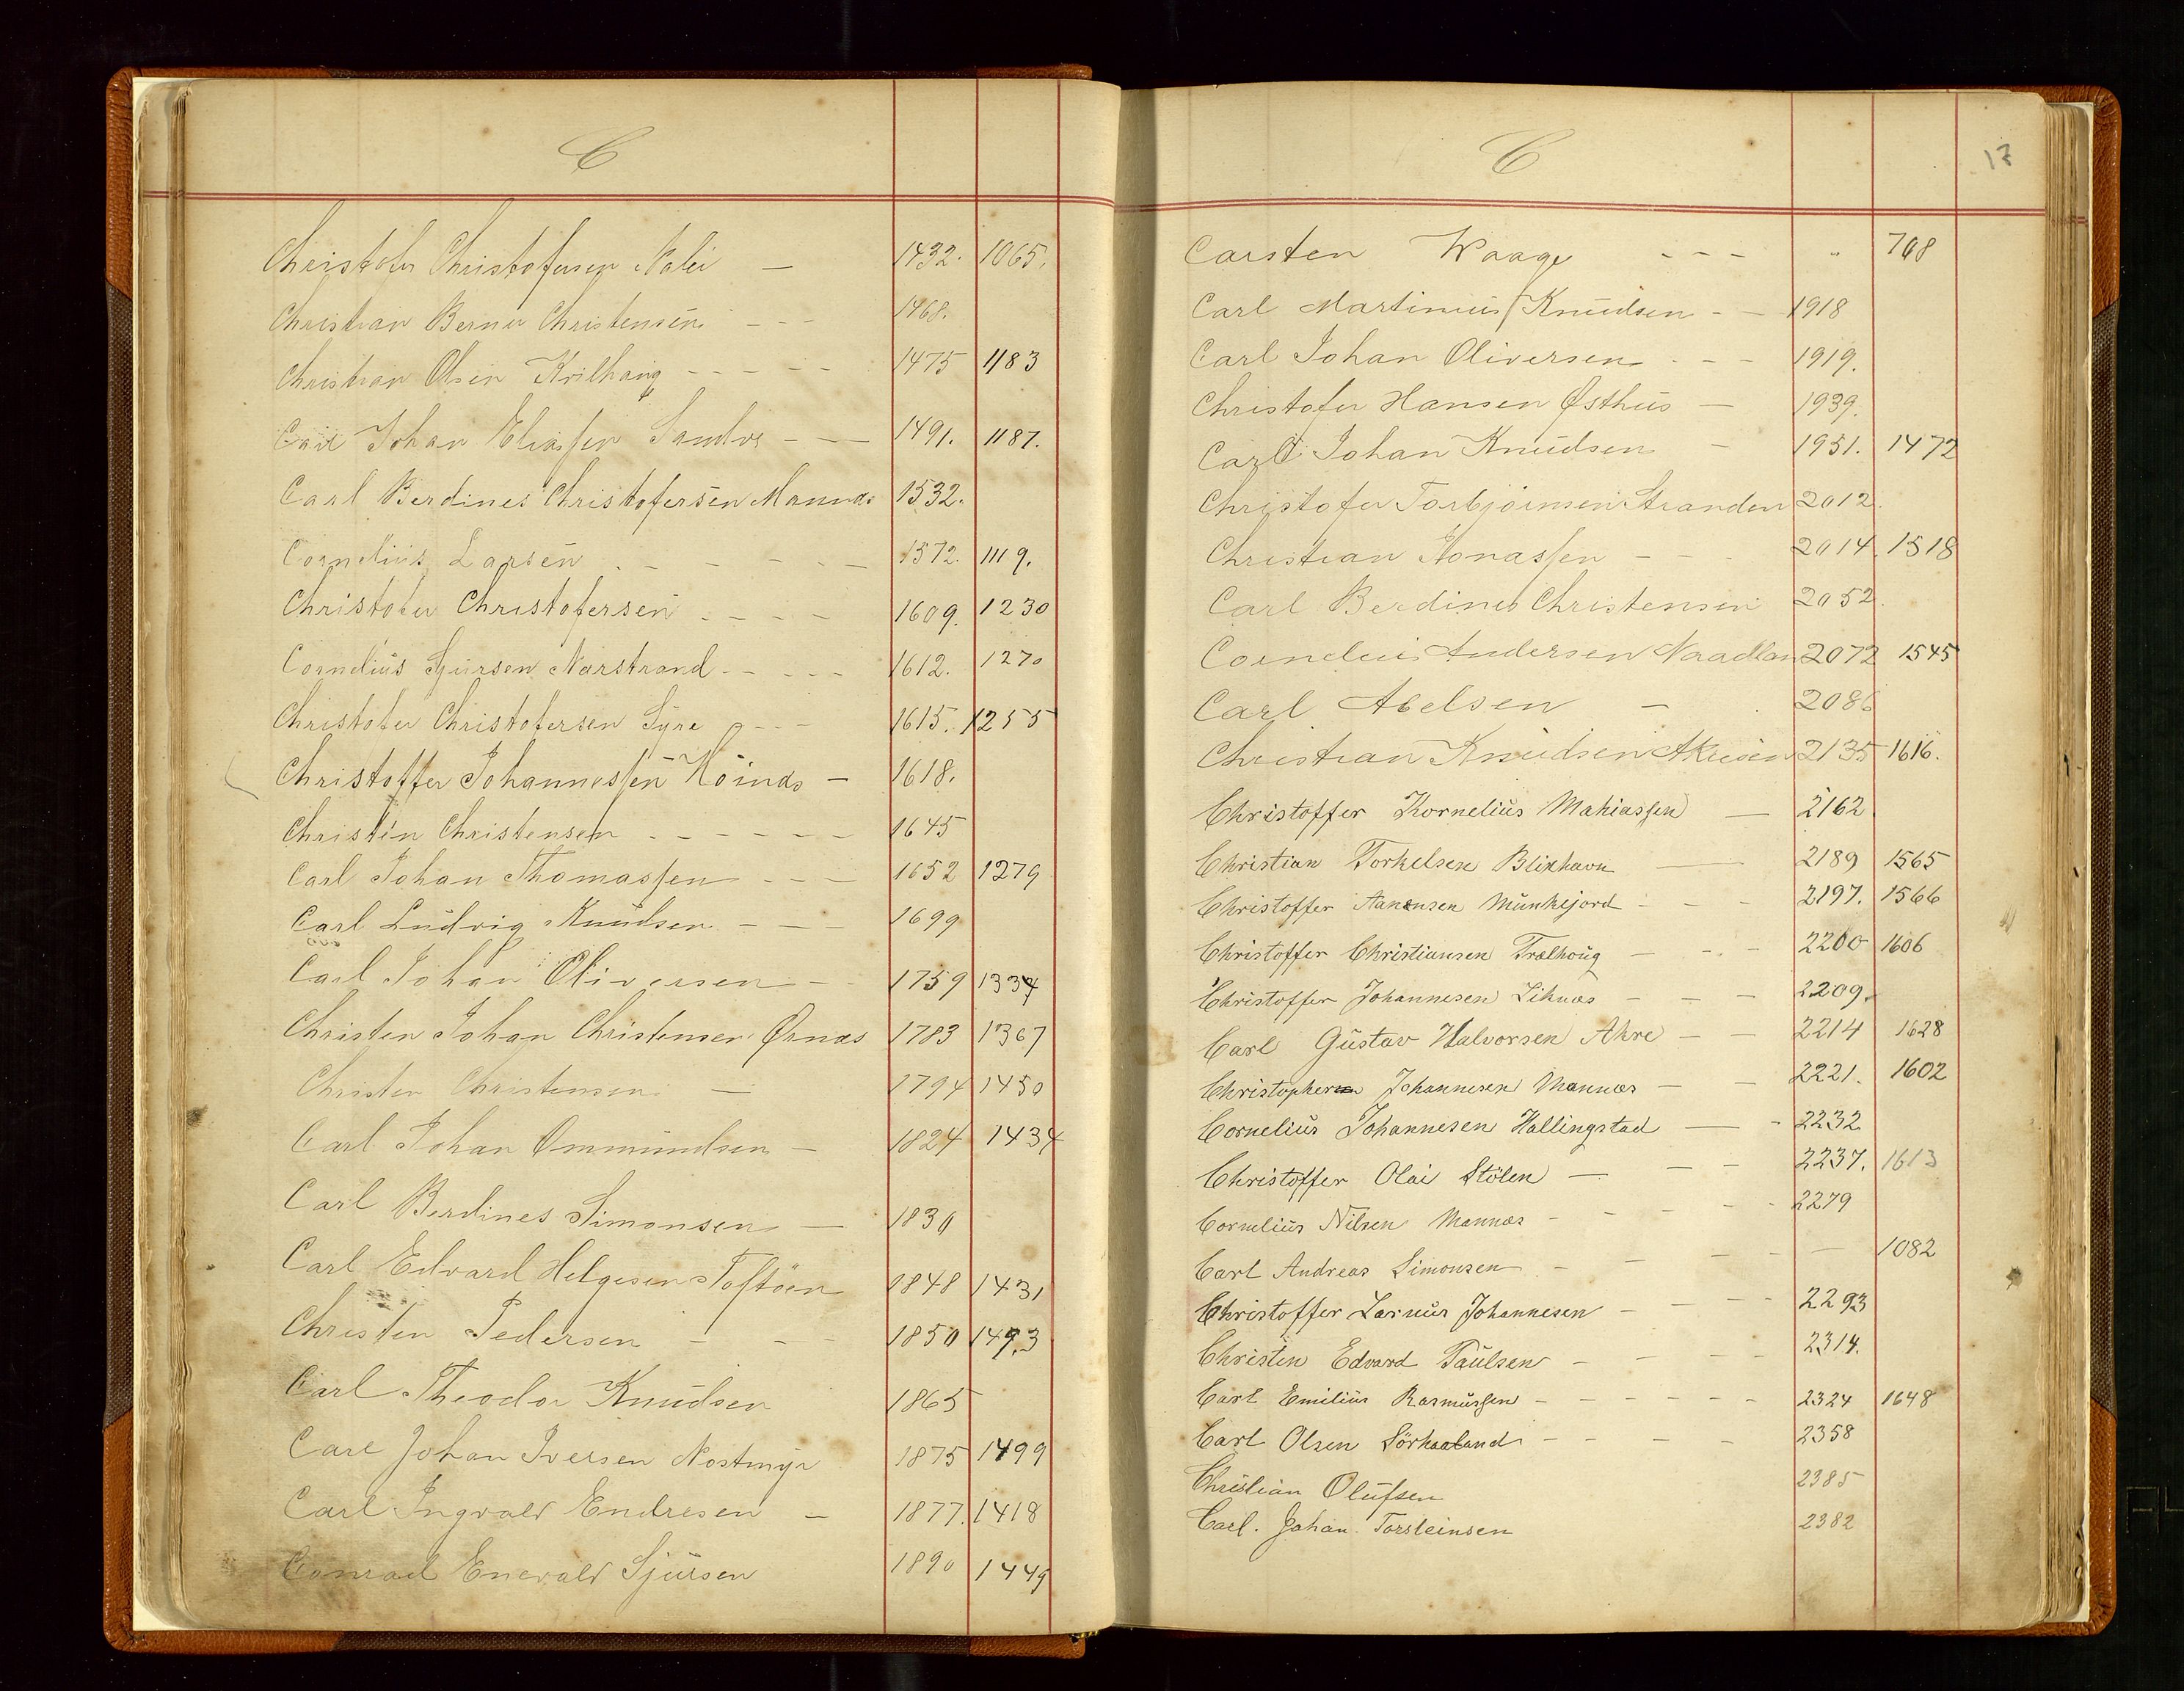 C
Christofer Christofersen Nalei — 1432. 1065.
Christian Berner Christensen - - - 1468.
Christian Olsen - - - - - 1475 1183
Carl Johan Eliassen Sandve - - — 1491. 1187.
Carl Berdines Christofersen Mannæs 1532.
Cornelius Larsen . - - - - — 1572. 1119.
Christofer Christofersen - - - - 1609. 1230
Cornelius Sjursen Narstrand - - - - - 1612. 1270
Christofer Christofersen Syre - - - 1615. 1255
Christoffer Johannessen — 1618.
Christen Christensen - - - - - — 1645
Carl Johan Thomassen - - — 1652 1279
Carl Ludvig Knudsen - - — 1699
Carl Johan Oliversen - - 1759 1334
Christen Johan Christensen Ørnæs 1783 1367
Christen Christensen — 1794 1450
Carl Johan Ommundsen — 1824 1434
Carl Berdines Simonsen — 1830
Carl Edvard Helgesen Toftöen 1848 1431
Christen Pedersen - - — 1850 1493
Carl Theodor Knudsen 1865
Carl Johan Iversen Nostmyr 1875 1499
Carl Ingvald Endresen — 1877. 1418
Conrad Enevald Sjursen 1890 1449
C
17
Carsten Waage - - - " 768
Carl Martinius Knudsen - — 1918
Carl Johan Oliversen - - — 1919.
Christofer Hansen Østhus — 1939.
Carl Johan Knudsen - 1951. 1472
Christofer Torbjörnsen Stranden 2012.
Christian Jonassen - - - 2014. 1518
Carl Berdines Christensen 2052.
Cornelius Andersen Naadlan 2072 1545
Carl Abelsen — 2086
Christian Knudsen 2135 1616.
Christoffer Kornelius Mahiassen — 2162
Christian Torkelsen Blikhavn — 2189 1565
Christoffer Aanensen Munkejord - - - 2197. 1566
Christoffer Christiansen Trælhoug — - - 2200 1606
Christoffer Johannesen Liknæs - - - 2209.
Carl Gustav Halvorsen Akre — — 2214 1628
Christopher Johannesen Mannæs — — 2221. 1602
Cornelius Johannesen Hallingstad — - 2232
Christoffer Olai Stölen — — — 2237. 1613
Cornelius Nilsen Mannæs - - - - - 2279
Carl Andreas Simonsen - - - - — 1082
Christoffer Larnus Johannesen - - - - 2293
Christen Edvard Paulsen - - - - 2314.
Carl Emilius Rasmussen - - - - - - 2324 1648
Carl Olsen Sörhaaland - - - - 2358
Christian Olufsen 2385
Carl. Johan Torsteinsen 2382